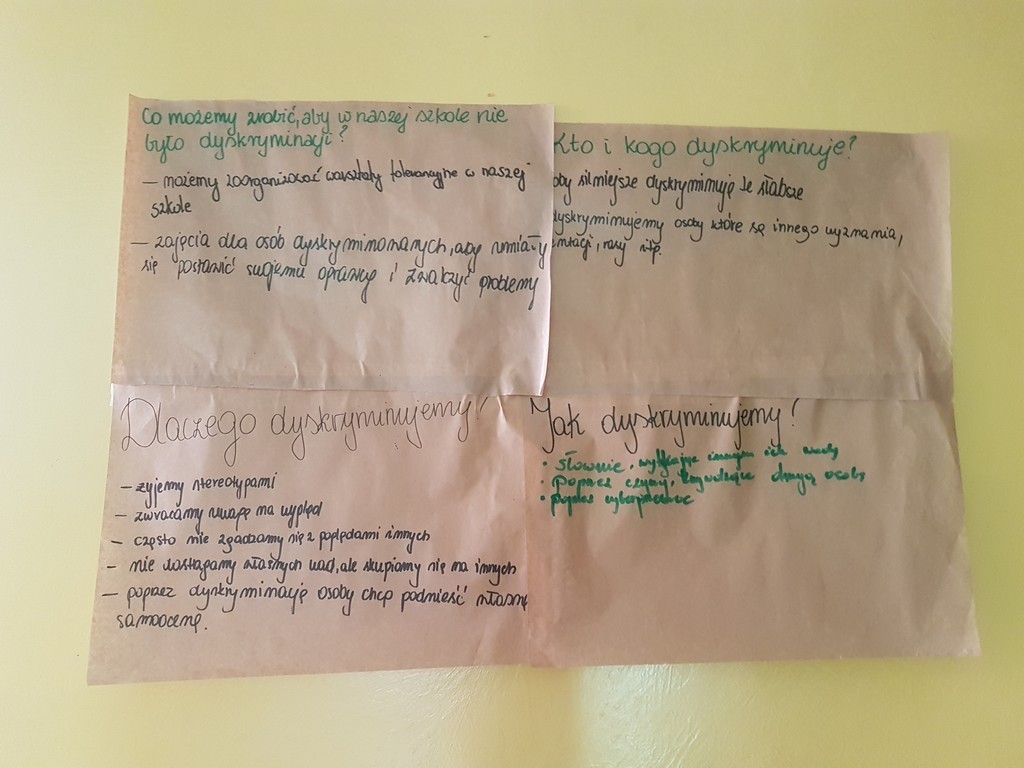 Co możemy zrobić, aby w naszej szkole nie
było dyskryminacji?
– możemy zoorganizować warsztaty tolerancyjne w naszej
szkole
– zajęcia dla osób dyskryminowanych, aby umiały
się postawić swojemu oprawcy i zwalczyć problemy
Kto i kogo dyskryminuje?
oby silniejsze dyskryminują te słabsze
dyskryminujemy osoby które są innego wyznania,
entacji, rasy itp.
Dlaczego dyskryminujemy?
– żyjemy stereotypami
– zwracamy uwagę na wygląd
– często nie zgadzamy się z poglądami innych
– nie dostrzegamy własnych wad, ale skupiamy się na innych
– poprzez dyskryminację osoby chcą podnieść własną
samoocenę.
Jak dyskryminujemy?
• słownie, wytykając innym ich wady
• poprzez czyny, drugą osobę
• poprzez cyberprzemoc